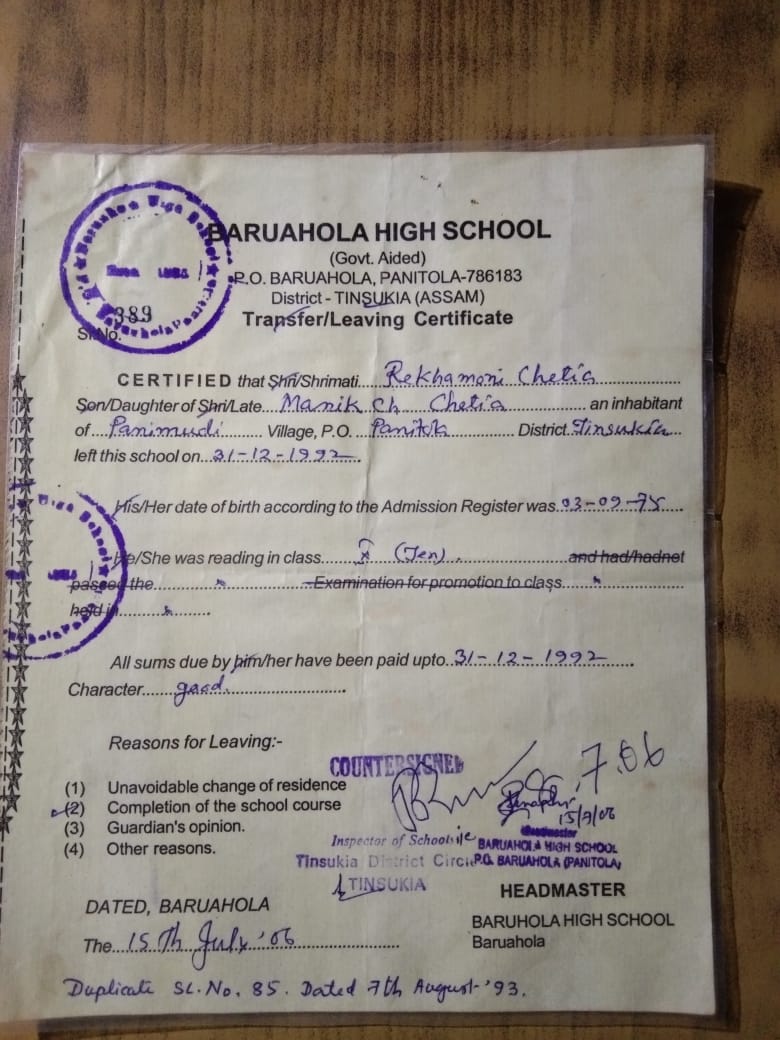 BARUAHOLA HIGH SCHOOL
(Govt. Aided)
P.O. BARUAHOLA, PANITOLA-786183
District - TINSUKIA (ASSAM)
Transfer/Leaving Certificate
Sl.No. 389
CERTIFIED that Shri/Shrimati....Rekhamoni Chetia....
Son/Daughter of Shri/Late...Manik Ch Chetia....an inhabitant
of...Panimudi....Village, P.O....District.Tinsukia...
left this school on...31-12-1992...
His/Her date of birth according to the Admission Register was.03-09-75....
He/She was reading in class....X (Ten)....and had/hadnet
passed the....Examination for promotion to class....
held in....
All sums due by him/her have been paid upto.31-12-1992....
Character....good....
Reasons for Leaving:-
(1) Unavoidable change of residence
(2) Completion of the school course
(3) Guardian's opinion.
(4) Other reasons.
COUNTERSIGNED
7.06
15/7/06
Inspector of Schools
Tinsukia District Circle
TINSUKIA
Headmaster
BARUAHOLA HIGH SCHOOL
P.O. BARUAHOLA (PANITOLA)
HEADMASTER
BARUHOLA HIGH SCHOOL
Baruahola
DATED, BARUAHOLA
The...15th July '06....
Duplicate SL.No. 85. Dated 7th August-'93.